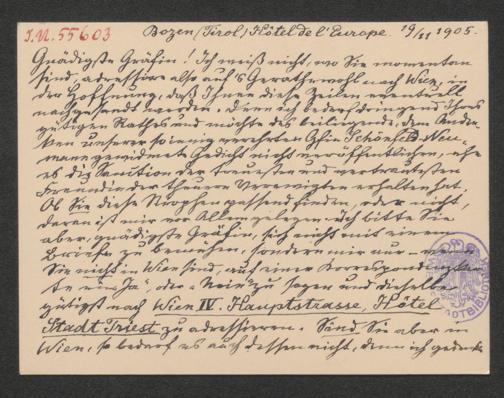 I.N. 55603
Bozen /Tirol/ Hôtel de l'Europe. 19/11 1905.
Gnädigste Gräfin! Ich weiß nicht, wo Sie momentan
sind, adressire also auf's Gerathewohl nach Wien, in
der Hoffnung, daß Ihnen diese Zeilen eventuell
nachgesandt werden, denn ich bedarf dringend Ihres
gütigen Rathes und möchte das beiliegende, dem Andenken
unserer so innig verehrten Gfin Schönfeld-Neumann
gewidmete Gedicht nicht veröffentlichen, ehe
es die Sanction der treuesten und vertrautesten
Freundin der theuren Verewigten erhalten hat.
Ob Sie diese Strophen passend finden, oder nicht,
daran ist mir vor Allem gelegen. Ich bitte Sie
aber, gnädigste Gräfin, sich nicht mit einem
Briefe zu bemühen, sondern mir nur – wenn
Sie nicht in Wien sind, auf einer Korrespondenzkarte
ein „Ja“, oder „Nein“ zu sagen und dieselbe
gütigst nach Wien IV. Hauptstrasse, Hôtel
Stadt Triest zu adressieren. Sind Sie aber in
Wien, so bedarf es auch dessen nicht, denn ich gedenke